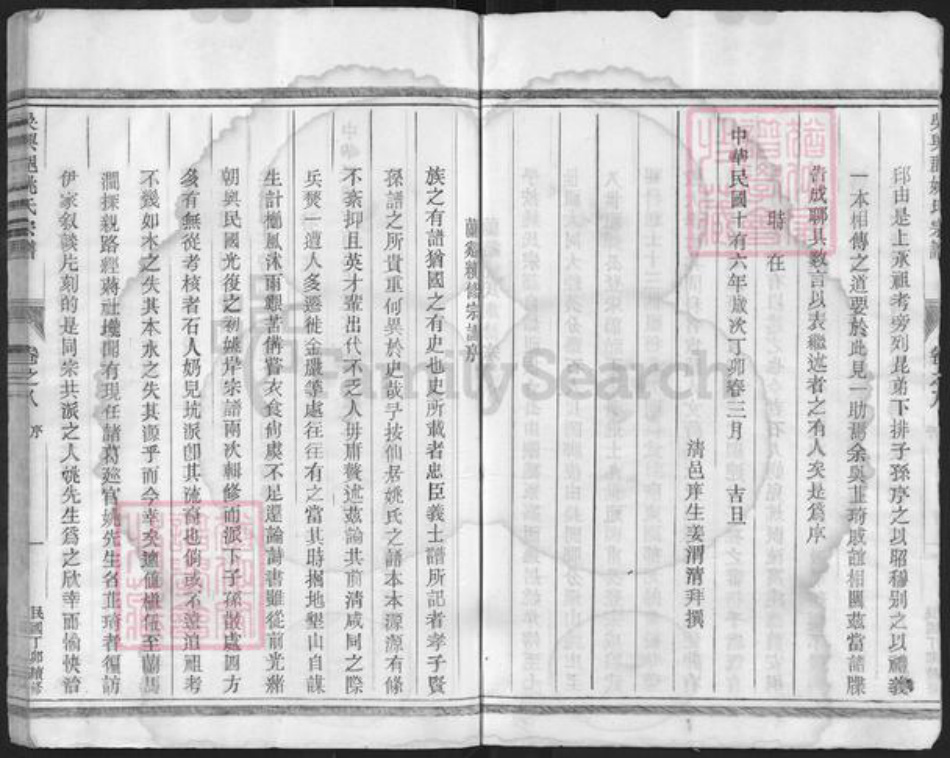 邱由是上承祖考旁列昆弟下排子孫序之以昭穆別之以禮義
一本相傳之道要於此見一助焉余與芷琦戚誼相關茲當譜牒
告成聊具數言以表繼述者之有人矣是爲序
時在
中華民國十有六年歲次丁卯春三月 吉旦
清邑庠生姜渭清拜撰
吳興 姚氏宗譜
卷之八 序 一 民國丁卯續修
蘭谿 續修宗譜序
族之有譜猶國之有史也史所載者忠臣義士譜所記者孝子賢
孫譜之所貴重何異於史哉予按仙居姚氏之譜本本源源有條
不紊抑且英才輩出代不乏人毋庸贅述茲論其前清咸同之際
兵燹一遭人多遷徙金嚴等處往往有之當其時掘地墾山自謀
生計櫛風沐雨艱苦備嘗衣食尚虞不足遑論詩書雖從前光緒
朝與民國光復之初 岸宗譜兩次輯修而派下子孫散處四方
多有無從考核者石人奶兒坑派卽其流裔也倘或不追祖考
不幾如木之失其本水之失其源乎而今幸矣 至蘭
澗探親路經蔣社壠聞有現任諸葛 官姚先生名芷琦者復訪
伊家叙談片刻的是同宗共派之人姚先生爲之欣幸而愉快洽
FamilySearch